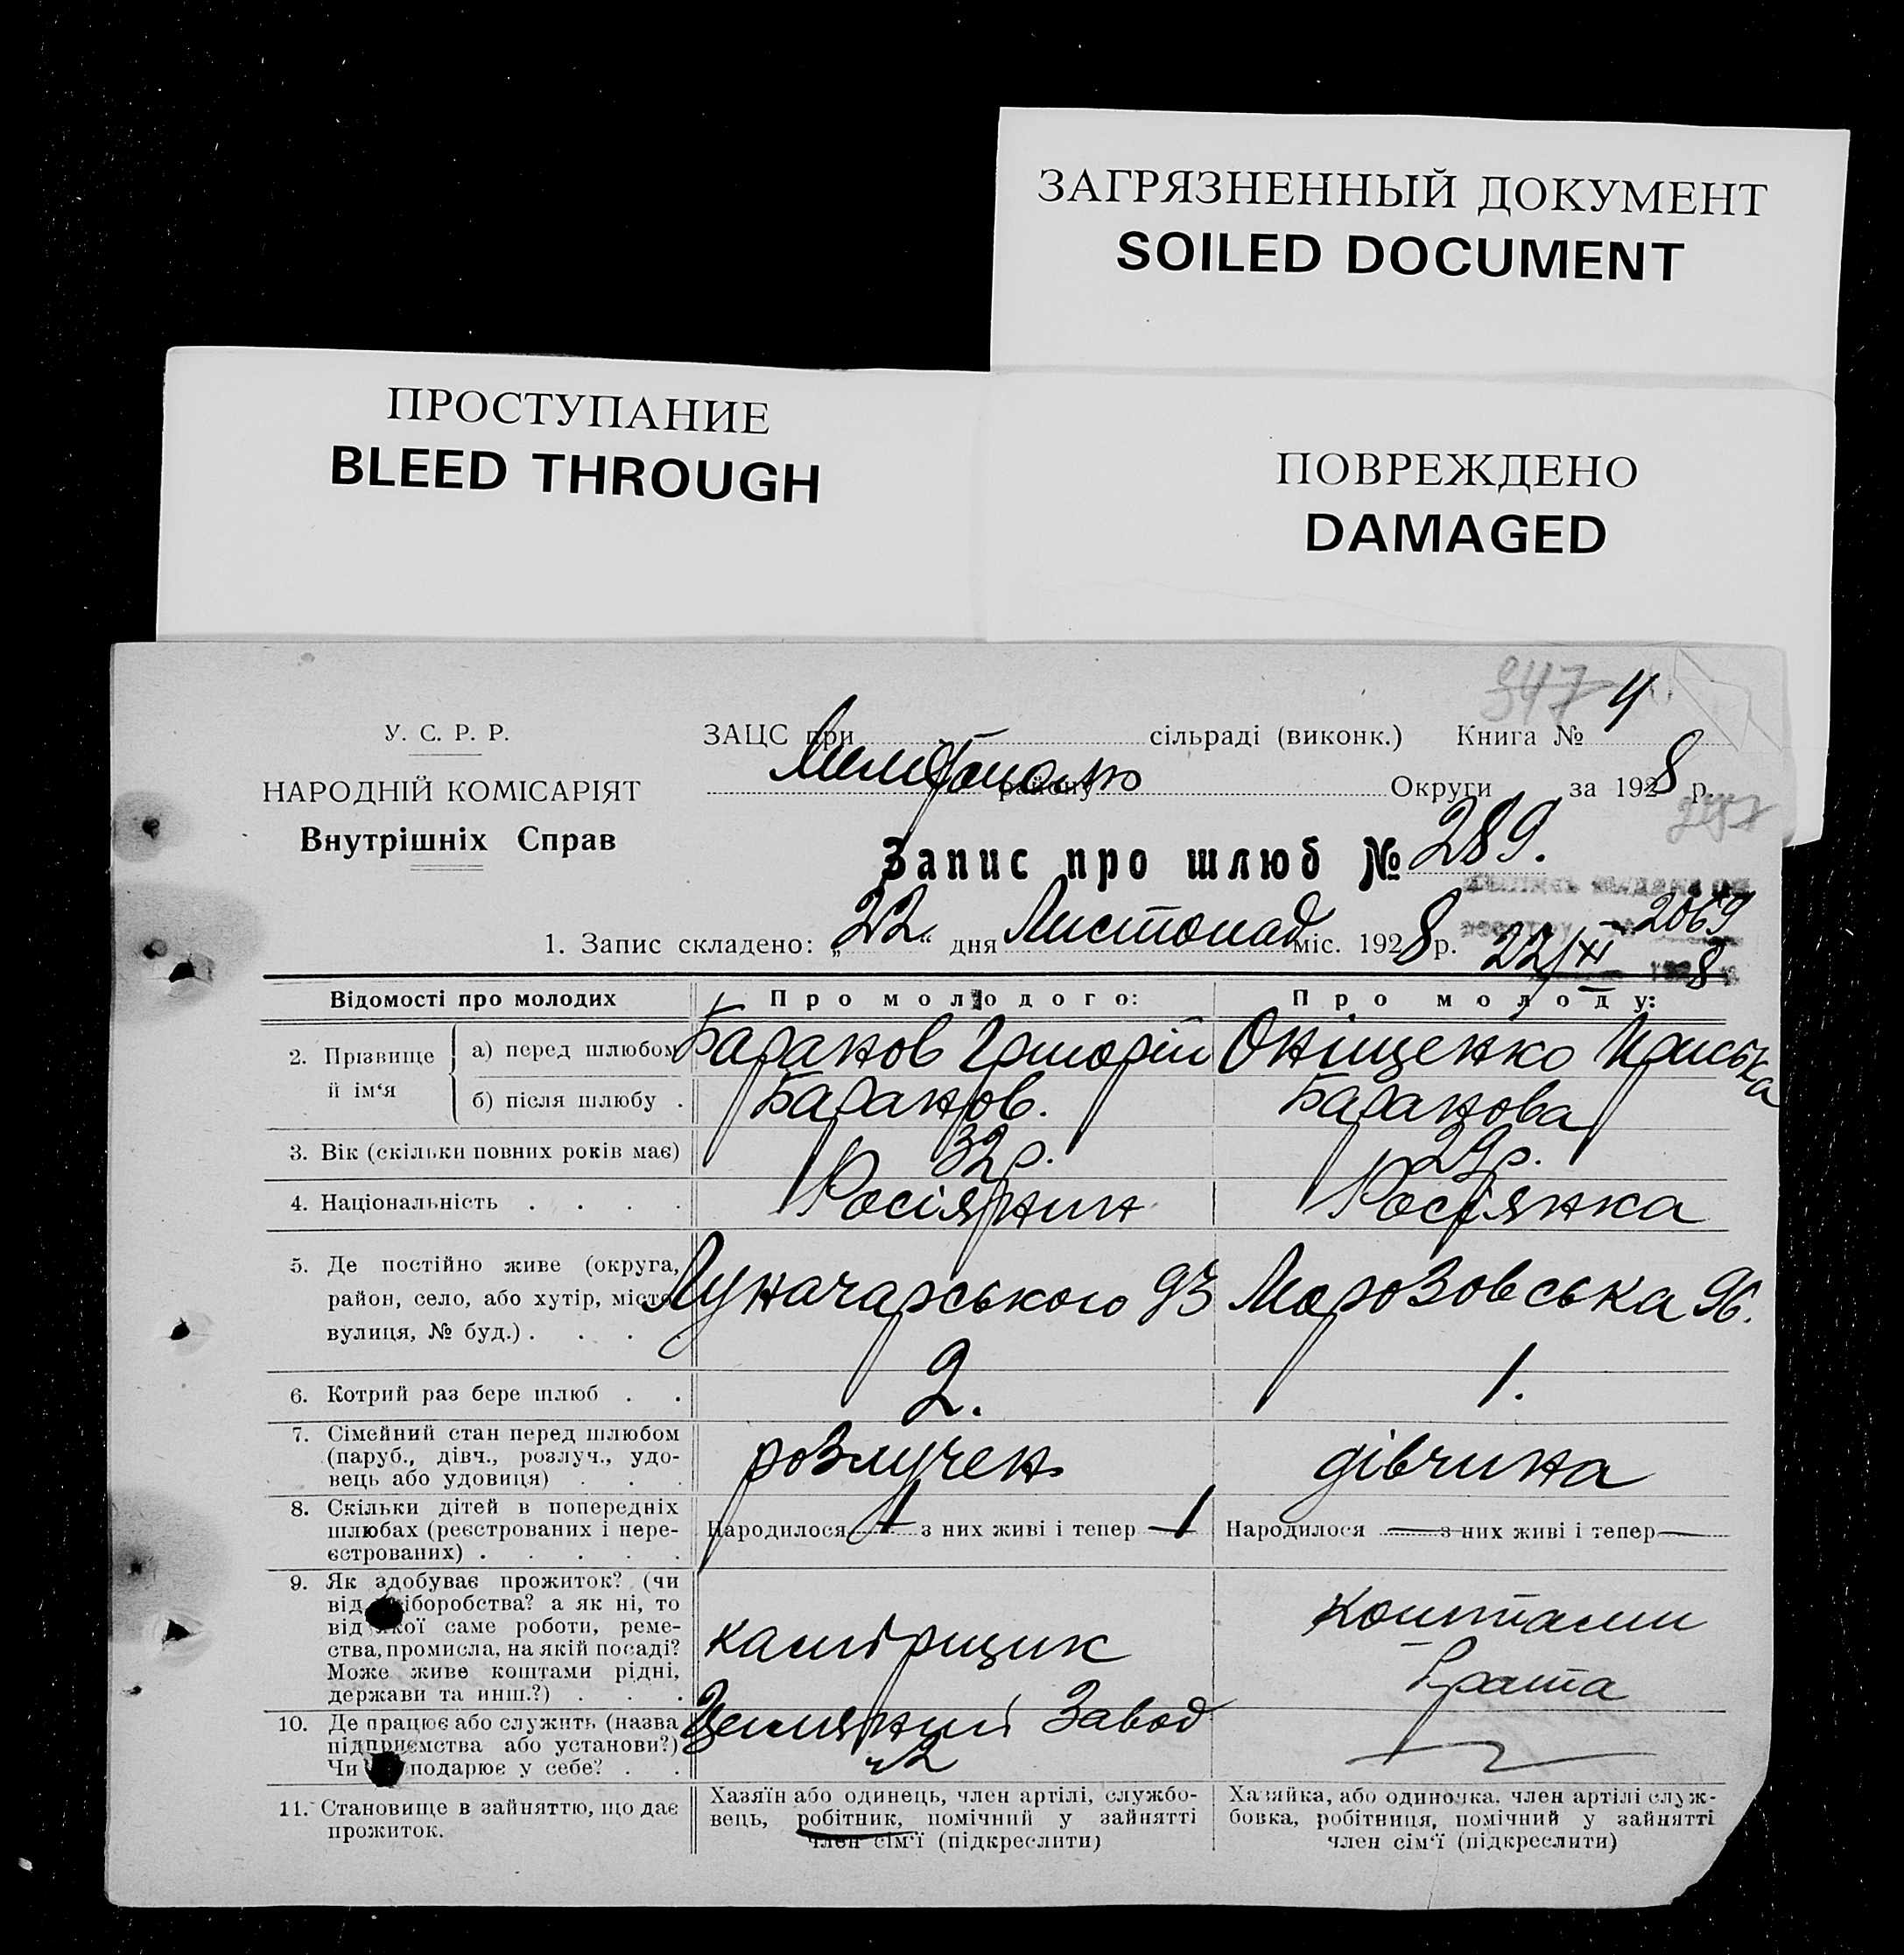 ЗАГРЯЗНЕННЫЙ ДОКУМЕНТ
SOILED DOCUMENT
ПРОСТУПАНИЕ
BLEED THROUGH
ПОВРЕЖДЕНО
DAMAGED
347 4
У. С. Р. Р.
ЗАЦС при сільраді (виконк.) Книга №
НАРОДНІЙ КОМІСАРІЯТ
району Округи за 1928 р.
Внутрішніх Справ
Запис про шлюб № 289.
2069
1. Запис складено: „22“ дня Листопад міс. 1928 р. 22/XI 8
Відомості про молодих Про молодого: Про молоду:
2. Прізвище й ім‘я а) перед шлюбом Баранов Григорій Оніщенко Приська
б) після шлюбу . Баранов. Баранова
3. Вік (скільки повних років має) 32 р. 29 р.
4. Національність . . . . Росіянин Росіянка
5. Де постійно живе (округа,
район, село, або хутір, місто, Луначарського 93 Морозовська 96.
вулиця, № буд.) . . . .
6. Котрий раз бере шлюб . . 2. 1.
7. Сімейний стан перед шлюбом
(паруб., дівч., розлуч., удо- розлучен дівчина
вець або удовиця) . . .
8. Скільки дітей в попередніх
шлюбах (реєстрованих і нере- Народилося 1 з них живі і тепер 1 Народилося — з них живі і тепер —
єстрованих) . . . . .
9. Як здобуває прожиток? (чи
від хліборобства? а як ні, то Коштами
від якої саме роботи, реме-
ства, промисла, на якій посаді?
Може живе коштами рідні, брата
держави та инш.?) . . .
10. Де працює або служить (назва Завод
підприємства або установи?) 2
Чи подарює у себе? . .
11. Становище в зайняттю, що дає Хазяїн або одинець, член артілі, службо- Хазяйка, або одиночка, член артілі служ-
прожиток. вець, робітник, помічний у зайнятті бовка, робітниця, помічний у зайнятті
член сім‘ї (підкреслити) член сім‘ї (підкреслити)